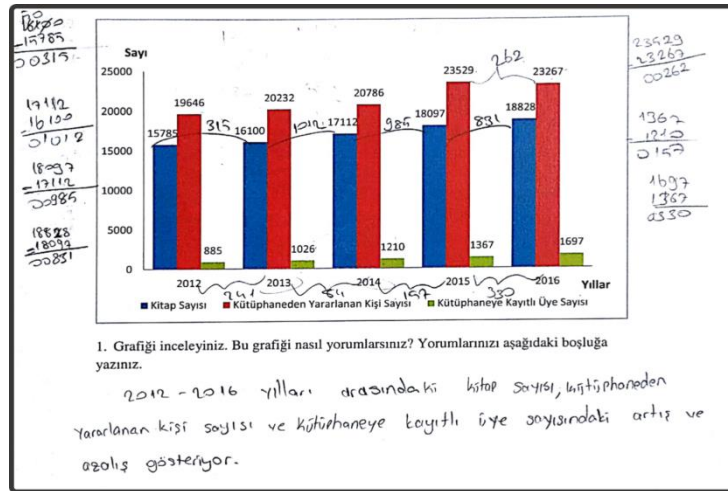 18100
-15785
00315
17112
16100
01012
18097
-17112
00985
18828
-18097
00831
23529
-23267
00262
1367
1210
0157
1697
1367
0330
Sayı
25000
20000
15000
10000
5000
0
15785 19646 885
16100 20232 1026
17112 20786 1210
18097 23529 1367
18828 23267 1697
315 1012 985 831
262
2012 2013 2014 2015 2016 Yıllar
241 84 157 330
Kitap Sayısı Kütüphaneden Yararlanan Kişi Sayısı Kütüphaneye Kayıtlı Üye Sayısı
1. Grafiği inceleyiniz. Bu grafiği nasıl yorumlarsınız? Yorumlarınızı aşağıdaki boşluğa
yazınız.
2012 - 2016 yılları arasındaki kitap sayısı, kütüphaneden
yararlanan kişi sayısı ve kütüphaneye kayıtlı üye sayısındaki artış ve
azalış gösteriyor.